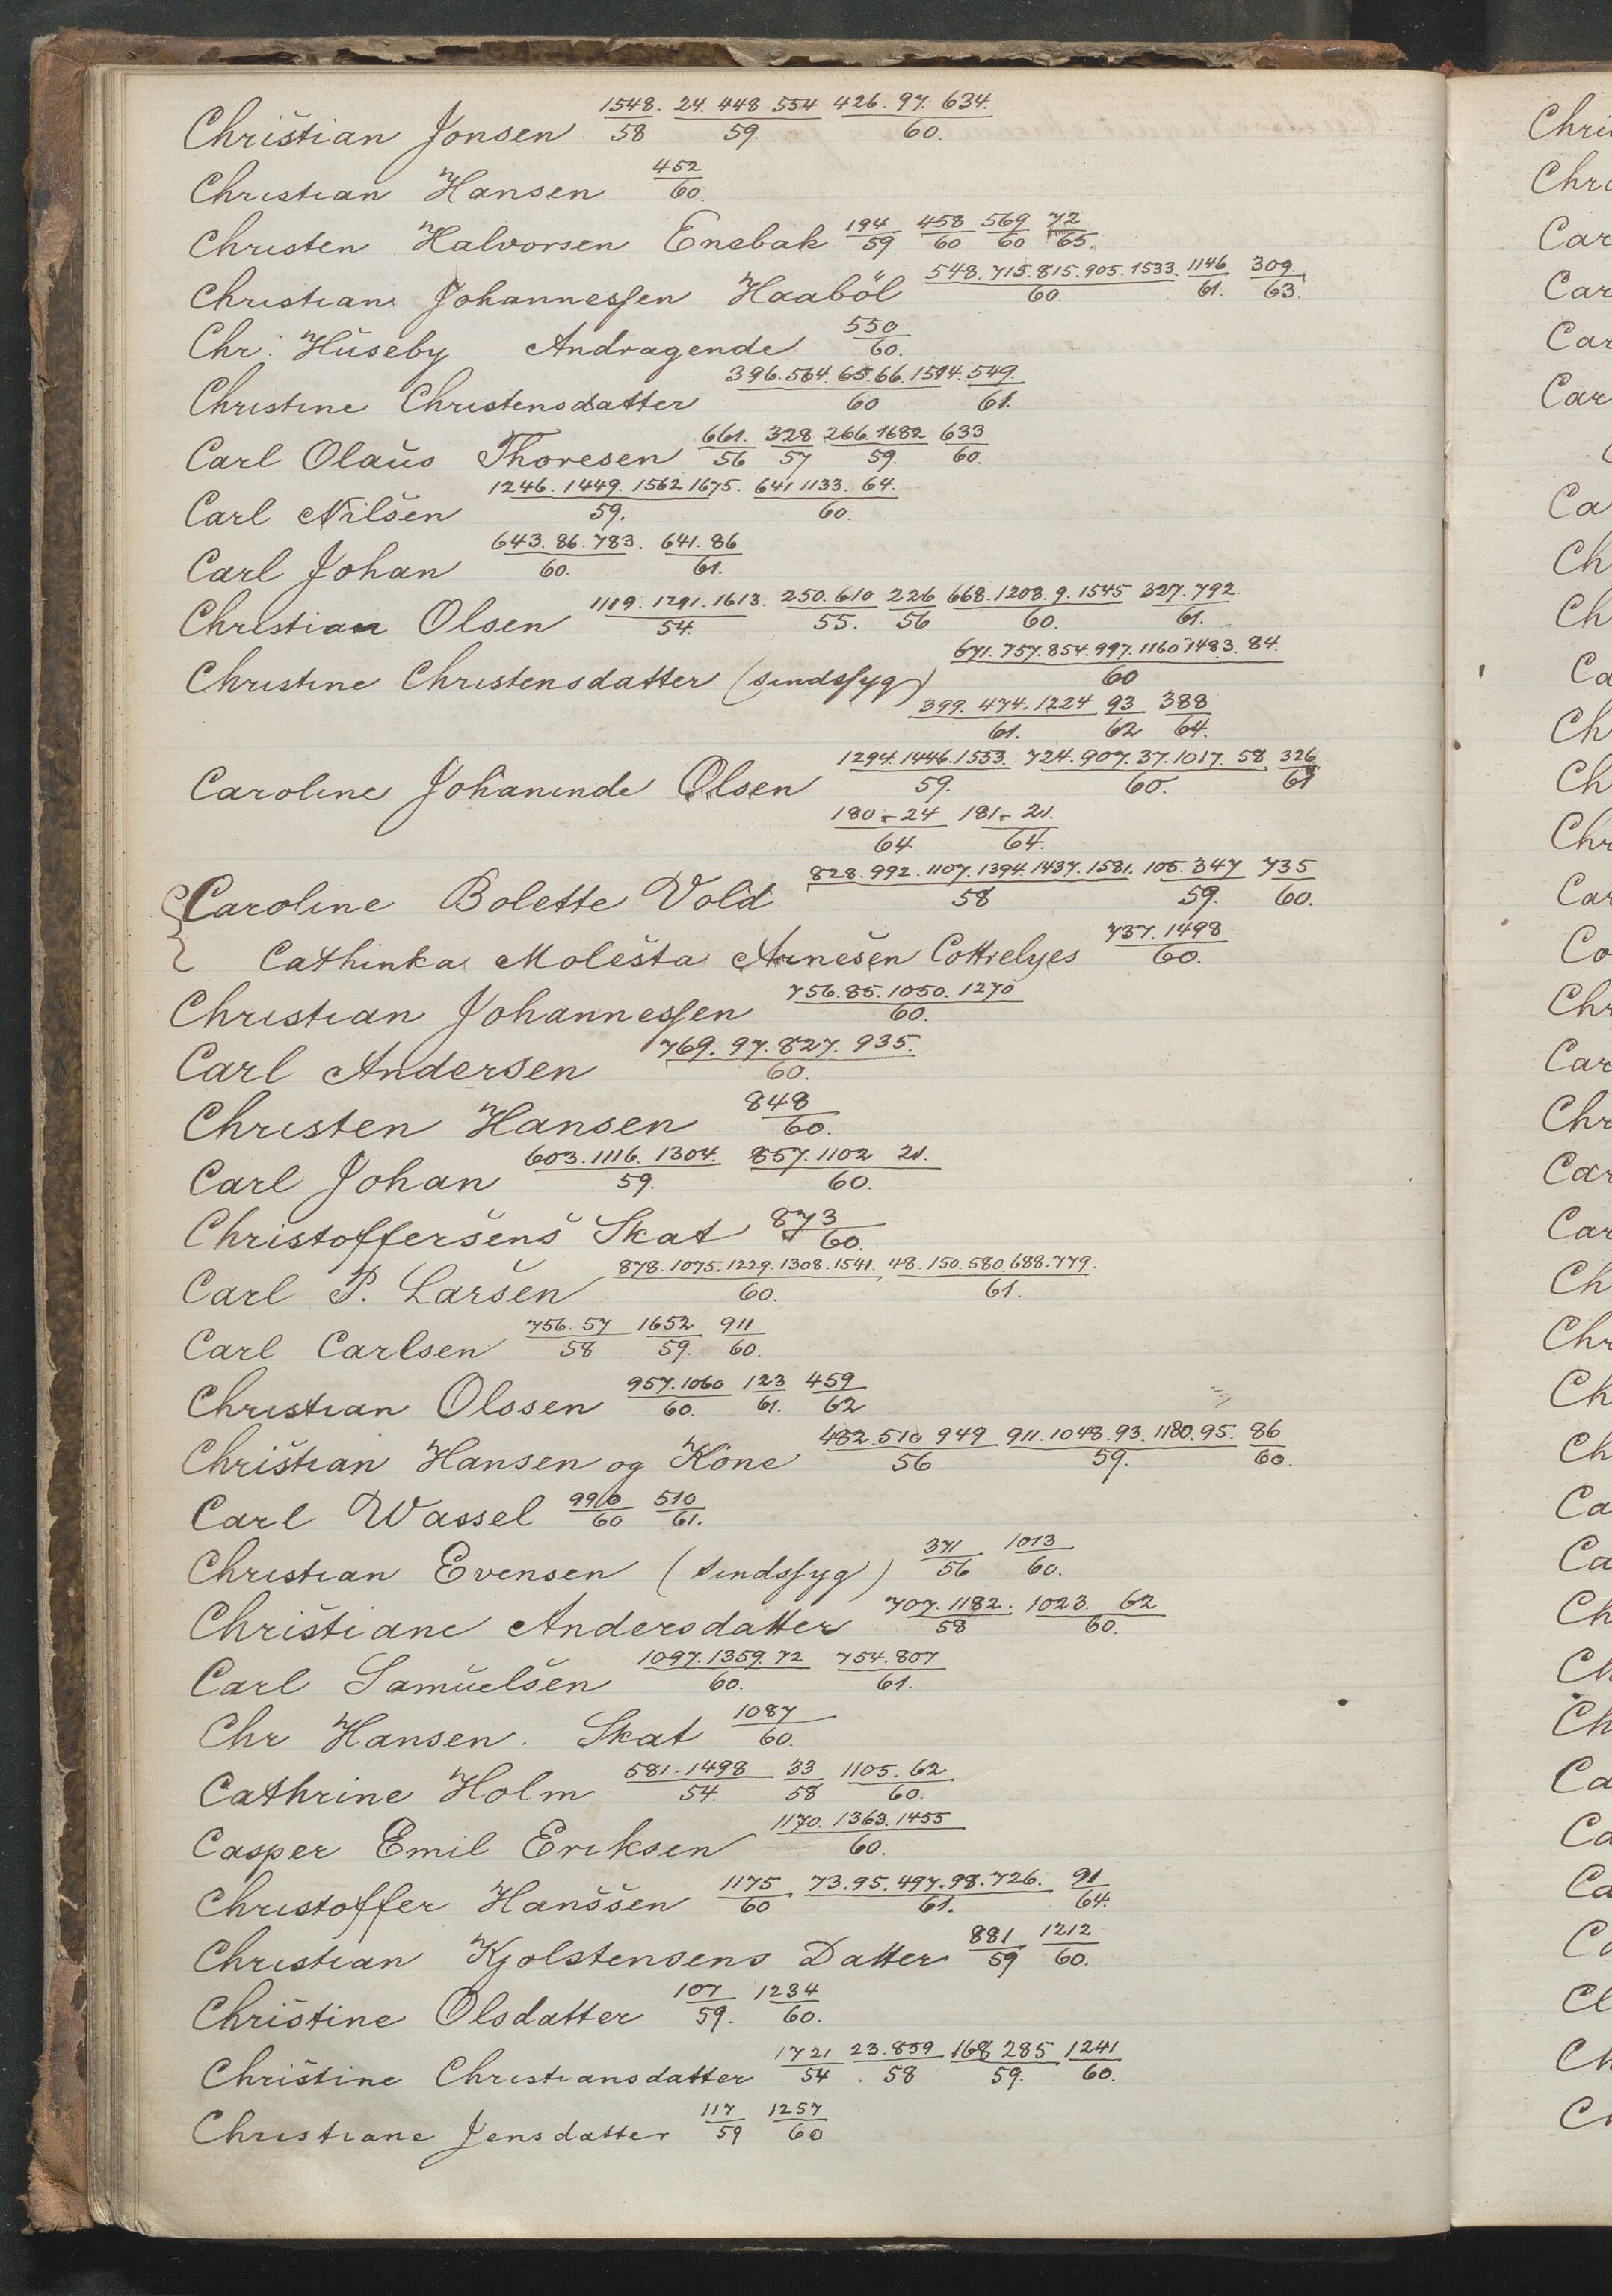 Christian Jonsen 1548./58 24. 448 554/59. 426. 97. 634./60.
Christian Hansen 452/60.
Christen Halvorsen Enebak 194/59 458/60 569/60 72/65.
Christian Johannessen Haaböl 548. 715. 815. 905. 1533./60. 1146/61. 309./63.
Chr. Huseby Andragende 550/60.
Christine Christensdatter 396. 564. 65. 66. 1514./60 549./61.
Carl Olaus Thoresen 661./56 328/57 266. 1682/59. 633/60.
Carl Nilsen 1246. 1449. 1562 1675./59. 641 1133. 64./60.
Carl Johan 643. 86. 783./60. 641. 86/61.
Christian Olsen 1119. 1291. 1613./54. 250. 610/55. 226/56 668. 1203. 9. 1545/60. 327. 792./61.
Christine Christensdatter (sindssyg) 671. 757. 854. 997. 1160 1483. 84./60
399. 474. 1224/61. 93/62 388/64.
Caroline Johaninde Olsen 1294. 1446. 1553./59. 724. 907. 37. 1017. 58/60. 326/61
180 - 24/64 181 - 21./64.
Caroline Bolette Vold 828. 992. 1107. 1394. 1437. 1581./58 105. 347/59. 735/60.
Cathinka Molesta Arnesen Cottrelyes 737. 1498/60.
Christian Johannessen 756. 85. 1050. 1270/60.
Carl Andersen 769. 97. 827. 935./60.
Christen Hansen 848/60.
Carl Johan 603. 1116. 1304./59. 857. 1102 21./60.
Christoffersens Skat 873/60.
Carl P. Larsen 878. 1075. 1229. 1308. 1541./60. 48. 150. 580. 688. 779./61.
Carl Carlsen 756. 57/58 1652/59. 911/60.
Christian Olssen 957. 1060/60. 123/61. 459/62
Christian Hansen og Kone 482. 510 949/56 911. 1048. 93. 1180. 95./59. 86/60.
Carl Wassel 990/60 510/61.
Christian Evensen (sindssyg) 371/56 1013/60.
Christiane Andersdatter 707. 1182./58 1023. 62/60.
Carl Samuelsen 1097. 1359. 72/60. 754. 807/61.
Chr Hansen. Skat 1087/60.
Cathrine Holm 581. 1498/54. 33/58 1105. 62/60.
Casper Emil Eriksen 1170. 1363. 1455/60.
Christoffer Hanssen 1175/60 73. 95. 497. 98. 726./61. 91/64.
Christian Kjolstensens Datter 881/59 1212/60.
Christine Olsdatter 107/59. 1234/60.
Christine Christiansdatter 1721/54 23. 859/58 168 285/59. 1241/60.
Christiane Jensdatter 117/59 1257/60